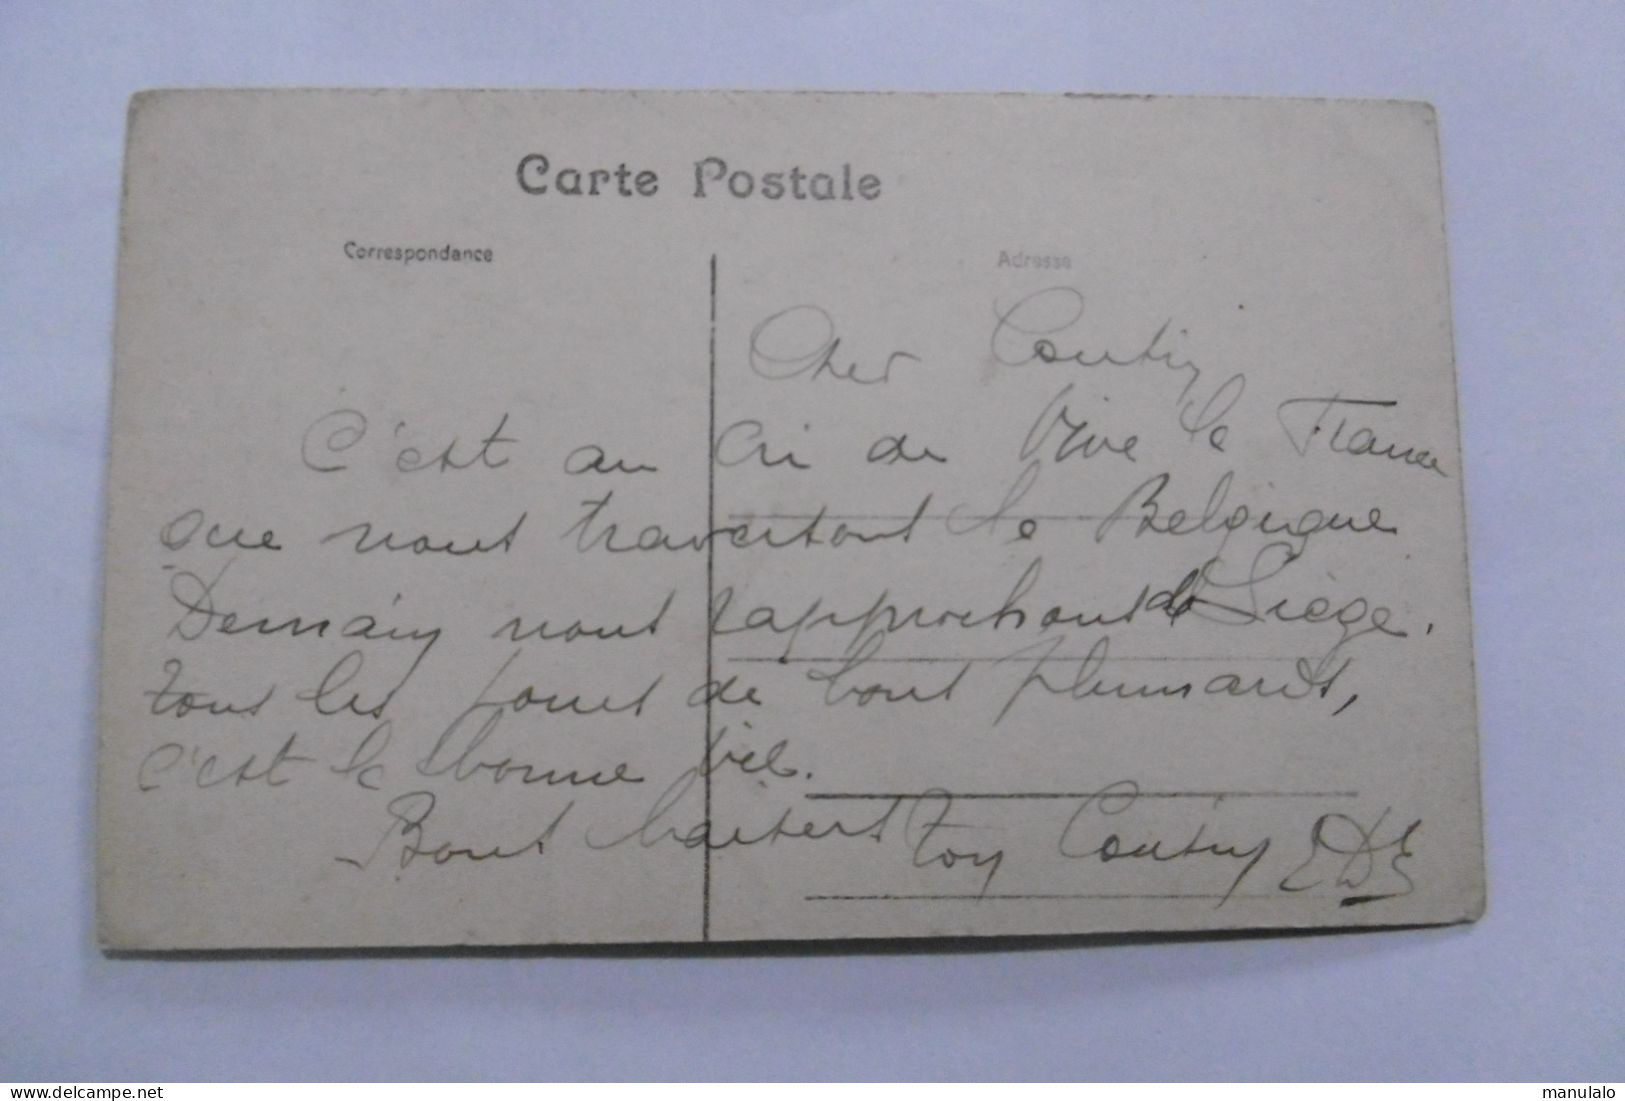 Carte Postale
Correspondance
Adresse
Cher Coutin
C'est au cri de Vive la France
que nous traversons la Belgique
Demain nous rapprochons de Liège.
tous les jours de bons plumards,
c'est la bonne vie.
Bons baisers Ton Coutin
www.delcampe.net
manulalo